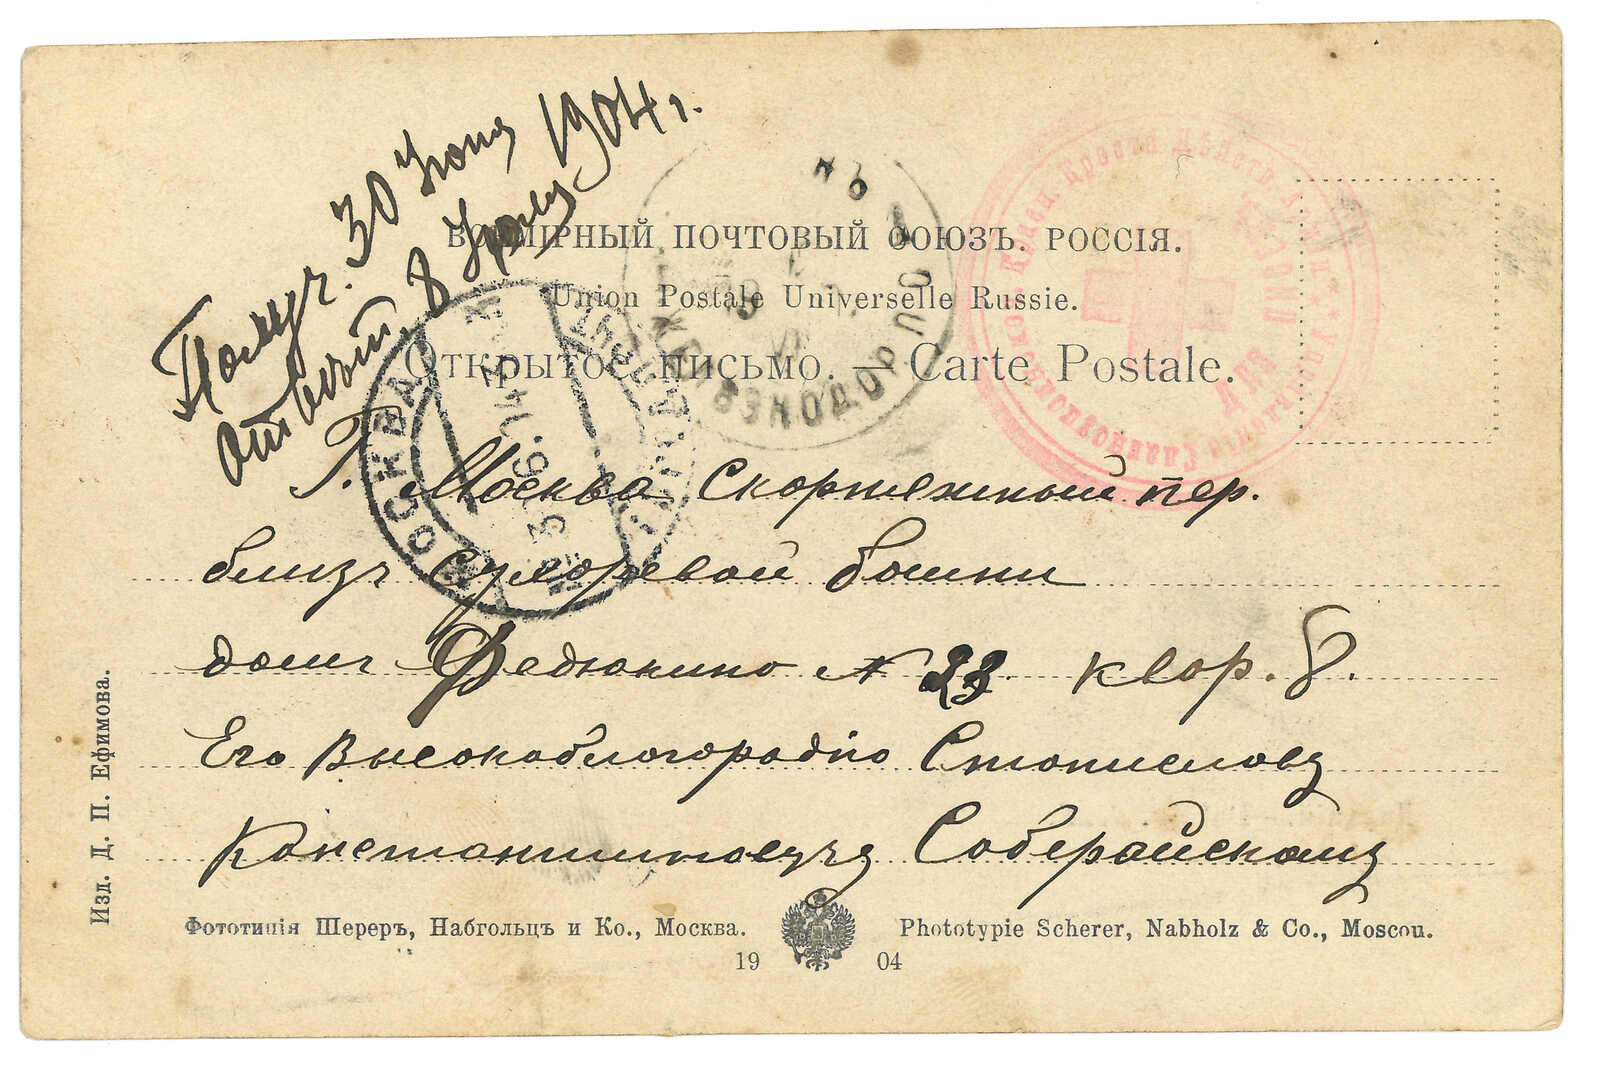 Получ. 30 Июня 1904 г.
отвѣт. 8
ВСЕМІРНЫЙ ПОЧТОВЫЙ СОЮЗЪ. РОССІЯ.
Union Postale Universelle Russie.
ОТКРЫТОЕ ПИСЬМО. — Carte Postale.
МОСКВА
Г. Москва Скорняжный пер.
близъ Сухаревой башни
домъ Федюкина № 23 квар. 8.
Его Высокоблагородію Станиславу
Константиновичу Соберайскому
Изд. Д. П. Ефимова.
Фототипія Шереръ, Набгольцъ и Ко., Москва.
Phototypie Scherer, Nabholz & Co., Moscou.
19 04